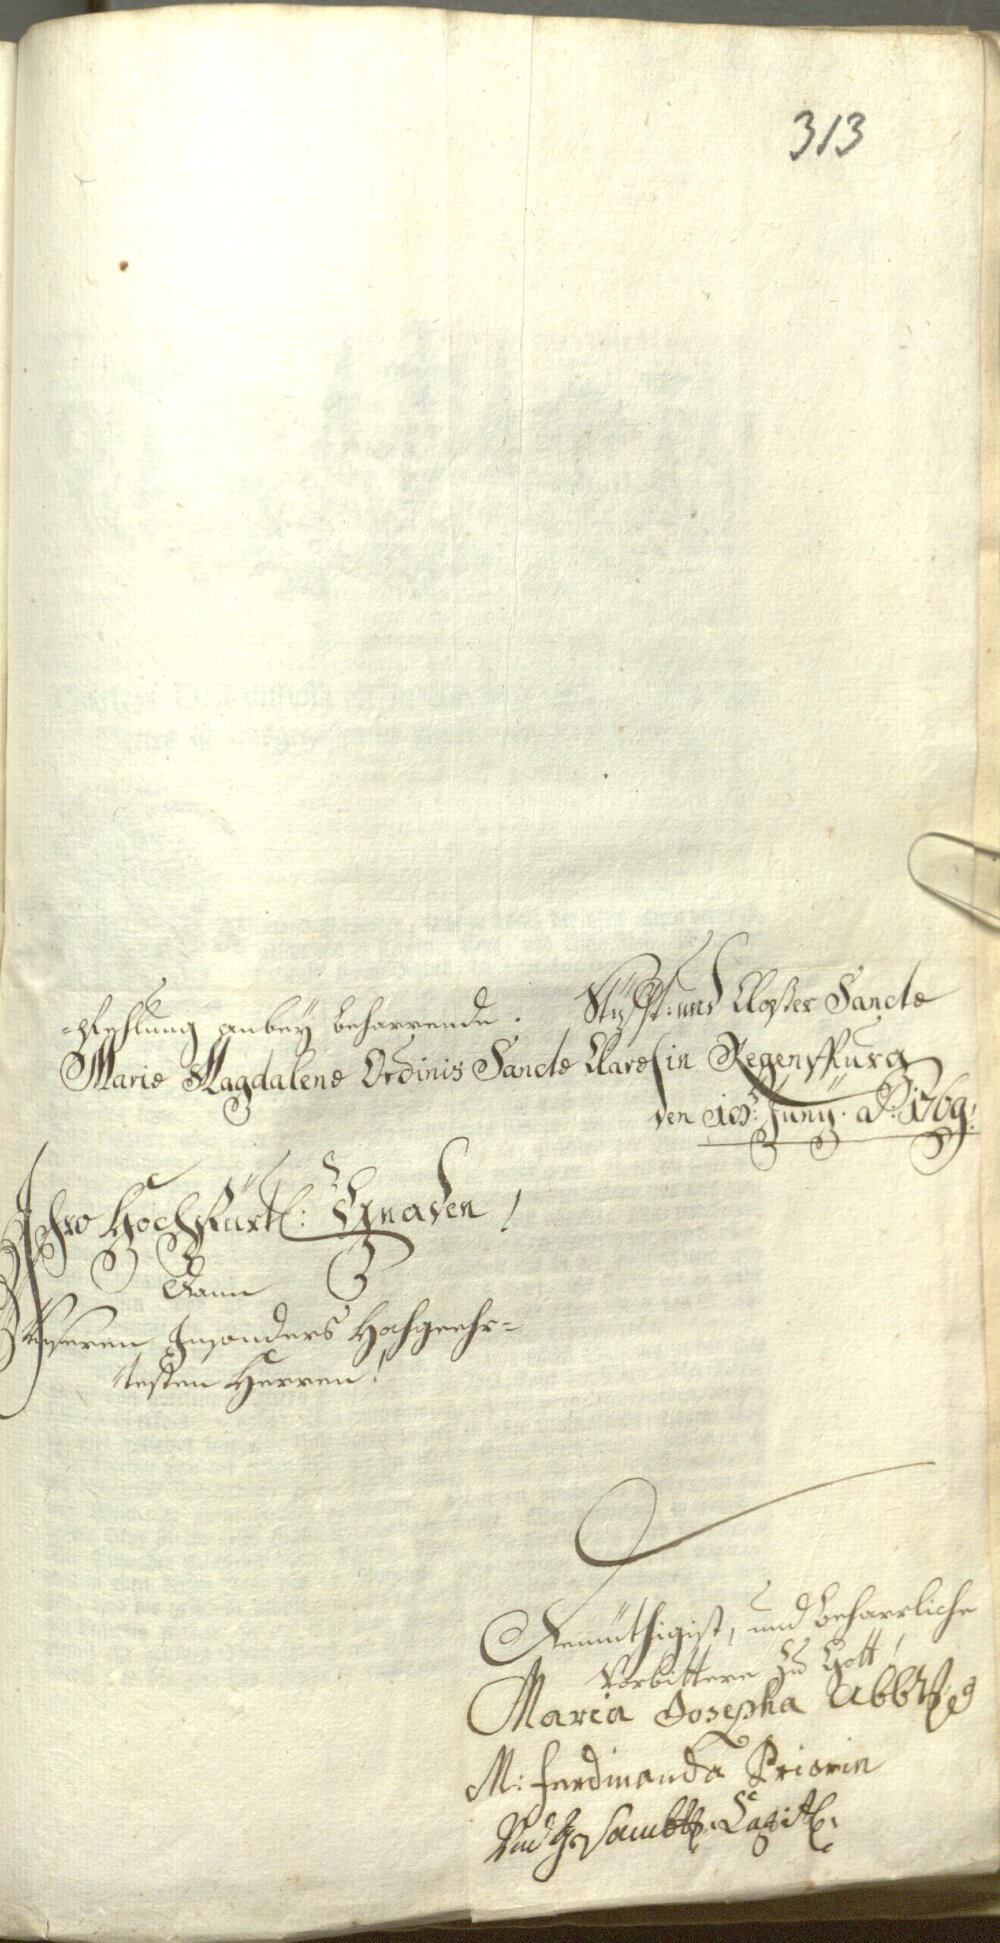 313
-pfehlung anbey beharrende. Stüfft: und Closter Sancte
Marie Magdalene Ordinis Sancte Clare in Regenspurg
den 10t: Juny. ao: 1769.
Ihro Hochfürtl: Gnaden!
Dann
Unseren Insonders Hochgeehr=
testen Herren!
Demüthigist, und beharrliche
Vorbittere zu Gott!
Maria Josepha Abbtß
M: Ferdinanda Priorin
Und gesambtß: Capitl: